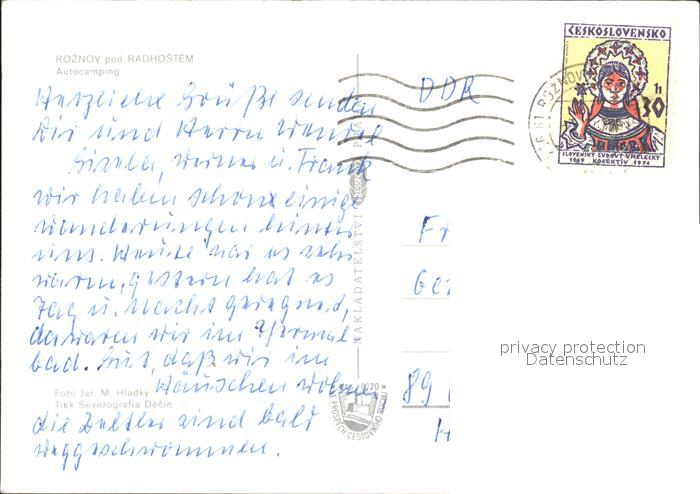 ROŽNOV pod RADHOŠTĚM
Autocamping
Herzliche Grüße senden
Dir und Herrn Wendel
Gisela, Werner u. Frank
wir haben schon einige
wanderungen hinter
uns. Heute war es sehr
warm, gestern hat es
Tag u. Nacht geregnet,
da waren wir im Thermal
bad. Gut, daß wir im
Häuschen wohnen,
die Zeltler sind bald
weggeschwommen.
Foto Jar. M. Hladký
Tisk Severografia Děčín
NAKLADATELSTVÍ
VE PROSPĚCH CESTOVNÍHO RUCHU
ČESKOSLOVENSKO
30 h
SLOVENSKÝ ĽUDOVÝ UMELECKÝ
1949 KOLEKTÍV 1974
ROŽNOV
DDR
Fr
Ge
89
H
privacy protection
Datenschutz